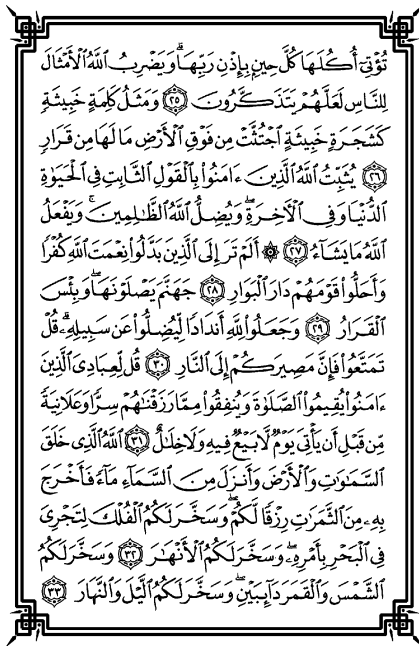 تُؤْتِىٓ أُكُلَهَا كُلَّ حِينٍۭ بِإِذْنِ رَبِّهَا ۗ وَيَضْرِبُ ٱللَّهُ ٱلْأَمْثَالَ
لِلنَّاسِ لَعَلَّهُمْ يَتَذَكَّرُونَ ٢٥ وَمَثَلُ كَلِمَةٍ خَبِيثَةٍ
كَشَجَرَةٍ خَبِيثَةٍ ٱجْتُثَّتْ مِن فَوْقِ ٱلْأَرْضِ مَا لَهَا مِن قَرَارٍ
٢٦ يُثَبِّتُ ٱللَّهُ ٱلَّذِينَ ءَامَنُوا۟ بِٱلْقَوْلِ ٱلثَّابِتِ فِى ٱلْحَيَوٰةِ
ٱلدُّنْيَا وَفِى ٱلْءَاخِرَةِ ۖ وَيُضِلُّ ٱللَّهُ ٱلظَّٰلِمِينَ ۚ وَيَفْعَلُ
ٱللَّهُ مَا يَشَآءُ ٢٧ ۞ أَلَمْ تَرَ إِلَى ٱلَّذِينَ بَدَّلُوا۟ نِعْمَتَ ٱللَّهِ كُفْرًا
وَأَحَلُّوا۟ قَوْمَهُمْ دَارَ ٱلْبَوَارِ ٢٨ جَهَنَّمَ يَصْلَوْنَهَا ۖ وَبِئْسَ
ٱلْقَرَارُ ٢٩ وَجَعَلُوا۟ لِلَّهِ أَندَادًا لِّيُضِلُّوا۟ عَن سَبِيلِهِۦ ۗ قُلْ
تَمَتَّعُوا۟ فَإِنَّ مَصِيرَكُمْ إِلَى ٱلنَّارِ ٣٠ قُل لِّعِبَادِىَ ٱلَّذِينَ
ءَامَنُوا۟ يُقِيمُوا۟ ٱلصَّلَوٰةَ وَيُنفِقُوا۟ مِمَّا رَزَقْنَٰهُمْ سِرًّا وَعَلَانِيَةً
مِّن قَبْلِ أَن يَأْتِىَ يَوْمٌ لَّا بَيْعٌ فِيهِ وَلَا خِلَٰلٌ ٣١ ٱللَّهُ ٱلَّذِى خَلَقَ
ٱلسَّمَٰوَٰتِ وَٱلْأَرْضَ وَأَنزَلَ مِنَ ٱلسَّمَآءِ مَآءً فَأَخْرَجَ
بِهِۦ مِنَ ٱلثَّمَرَٰتِ رِزْقًا لَّكُمْ ۖ وَسَخَّرَ لَكُمُ ٱلْفُلْكَ لِتَجْرِىَ
فِى ٱلْبَحْرِ بِأَمْرِهِۦ ۖ وَسَخَّرَ لَكُمُ ٱلْأَنْهَٰرَ ٣٢ وَسَخَّرَ لَكُمُ
ٱلشَّمْسَ وَٱلْقَمَرَ دَآئِبَيْنِ ۖ وَسَخَّرَ لَكُمُ ٱلَّيْلَ وَٱلنَّهَارَ ٣٣